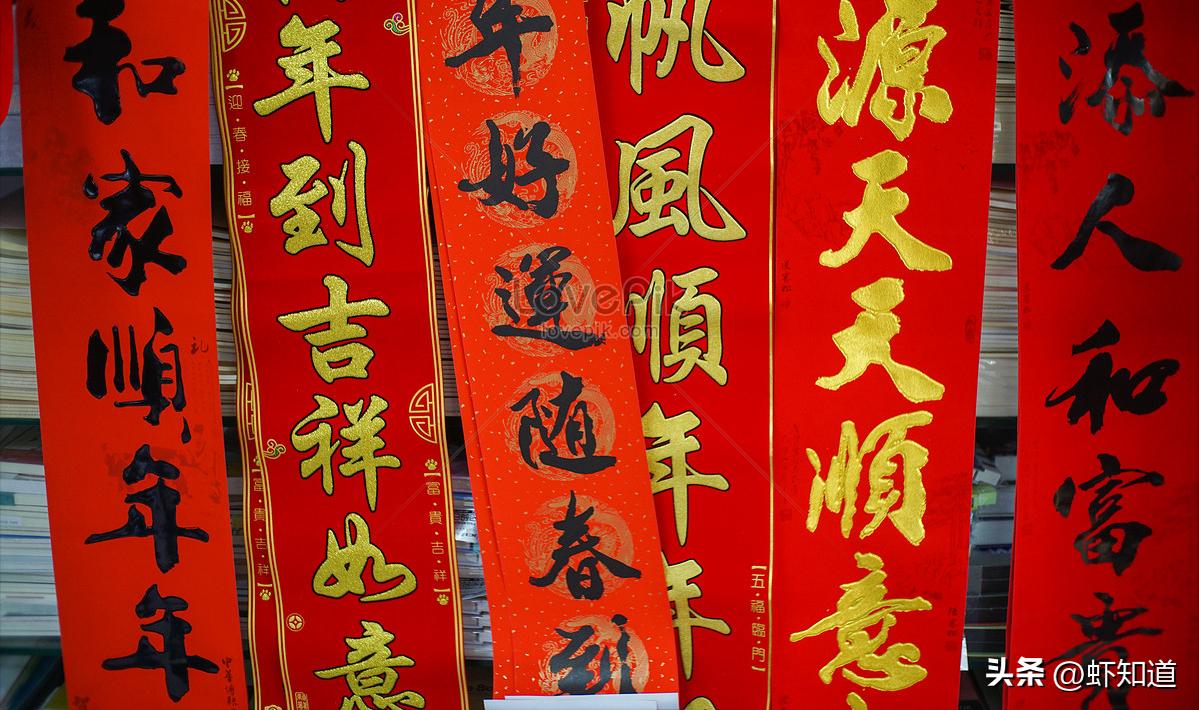 和家順年年
年到吉祥如意
迎·春·接·福
富·貴·吉·祥
富·貴·吉·祥
年好運随春到
帆風順年年
五·福·臨·門
源天天順意
添人和富貴
lovepik
lovepik.com
头条 @虾知道